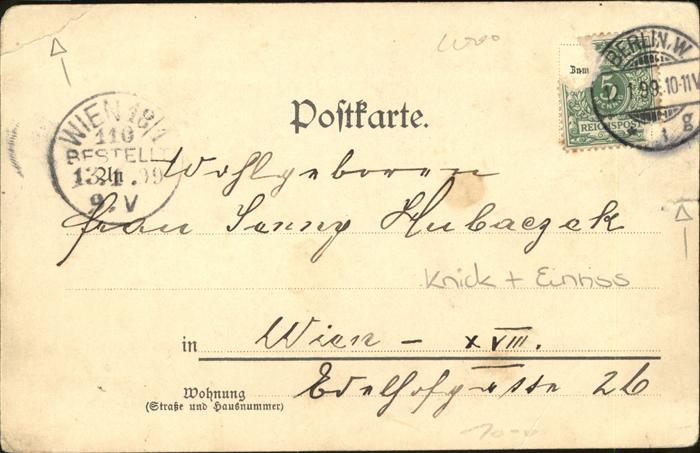 BERLIN.W
1.99.10-11V
g
5
REICHSPOST
Postkarte.
WIEN 18/1
110
BESTELLT
13.1.99
9.V
An
Wohlgeboren
Frau Jenny Hubaczek
Knick + Einriss
in Wien - XVIII.
Wohnung Edelhofgasse 26
(Straße und Hausnummer)